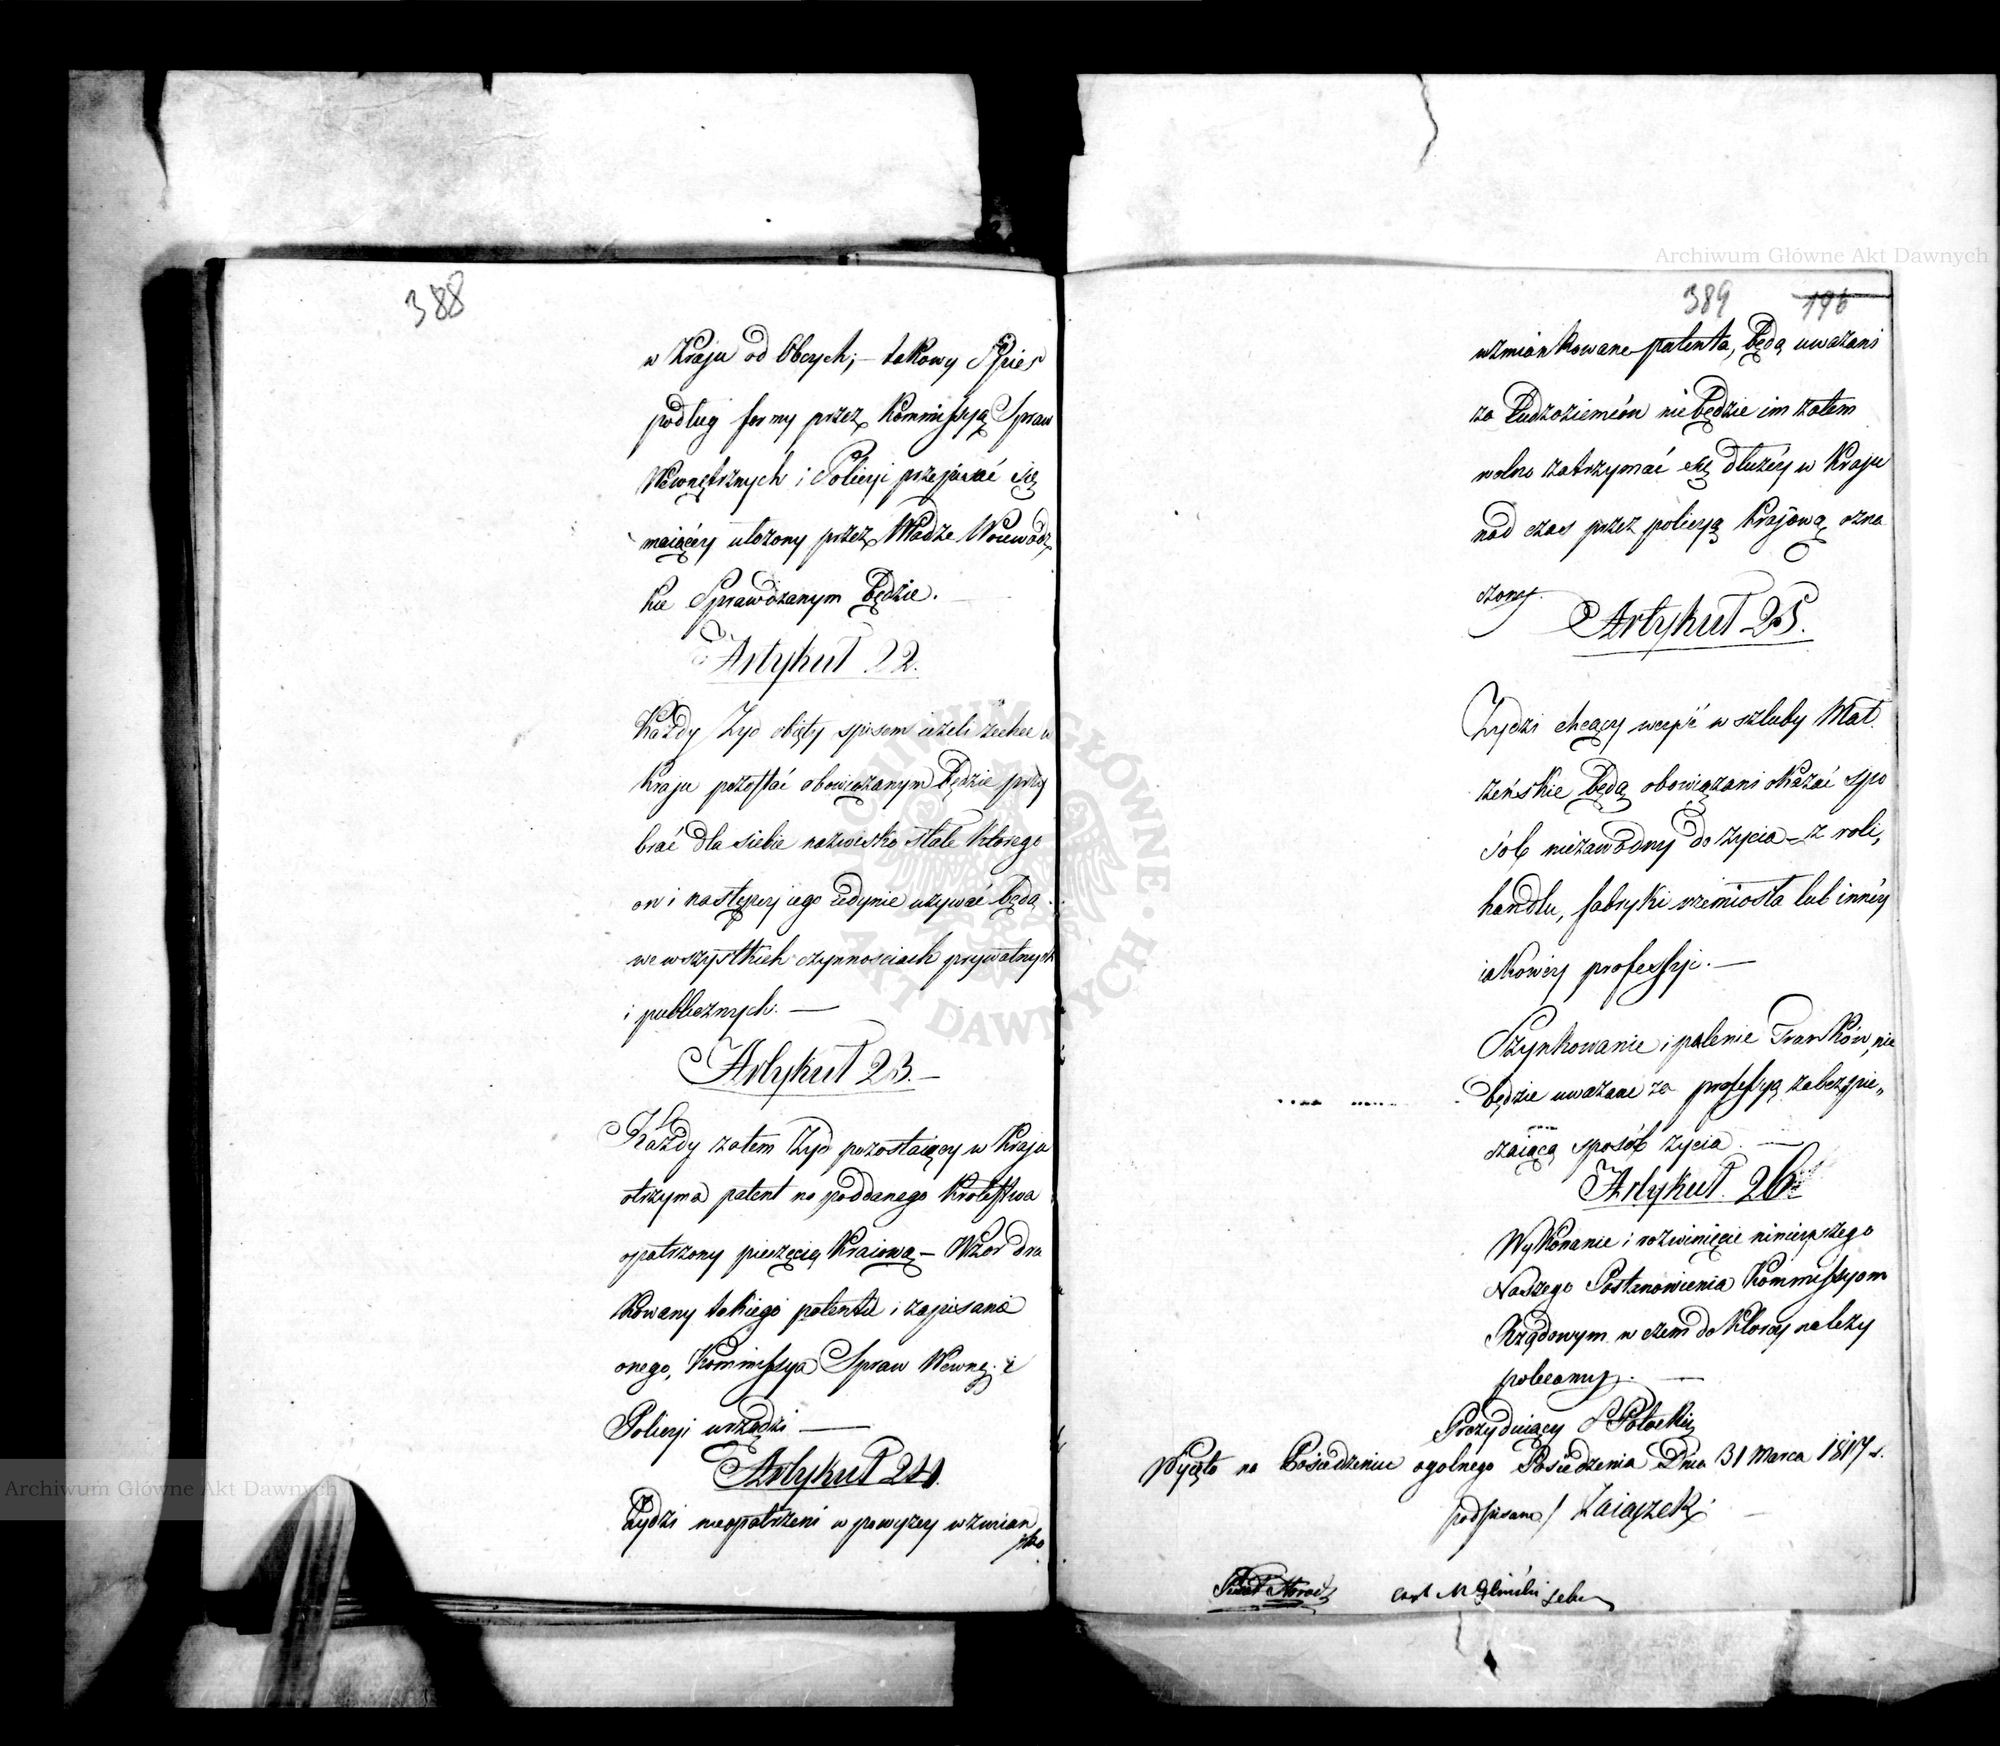 388
w Kraju od Obcych; — takowy Spis
podług formy przez Kommissyą Spraw
Wewnętrznych i Policyi przepisać się
maiącéy ułożony przez Władze Woiewódz
kie Sprawdzanym będzie.
Artykuł 22.
Każdy Żyd obięty spisem ieżeli zechce w
Kraju pozostać obowiązanym będzie przy
brać dla siebie nazwisko stałe którego
on i następcy iego iedynie używać będą
we wszystkich czynnościach prywatnych
i publicznych. —
Artykuł 23. —
Każdy zatem Żyd pozostaiący w Kraju
otrzyma patent na poddanego Krolestwa
opatrzony pieczęcią Kraiową — Wzor dru
kowany takiego patentu i zapisanie
onego, Kommissya Spraw Wewnę. i
Policyi urządzi —
Artykuł 24.
Żydzi nieopatrzeni w powyżey wzmian
389 196
wzmiankowane patenta, będą uważani
za Cudzoziemców nie będzie im zatem
wolno zatrzymać się dłużéy w Kraju
nad czas przez policyą Krajową ozna
czony.
Artykuł 25.
Żydzi chcący weyść w szluby Mał
żeńskie będą obowiązani okazać spo
sób niezawodny do życia — z roli,
handlu, fabryki rzemiosła lub innéy
iakowéy professyi. —
Szynkowanie i palenie Trunków, nie
będzie uważane za professyą zabezpie„
czaiącą sposób życia. —
Artykuł 26.
Wykonanie i rozwinięcie ninieyszego
Naszego Postanowienia Kommissyom
Rządowym w czem do Którey należy
polecamy. —
Prezyduiący S Potocki
Przyięto na Posiedzeniu ogolnego Posiedzenia Dnia 31 Marca 1817 r.
podpisano / Zaiączek
M Gliński
Archiwum Główne Akt Dawnych
Archiwum Główne Akt Dawnych
ARCHIWUM GŁÓWNE AKT DAWNYCH